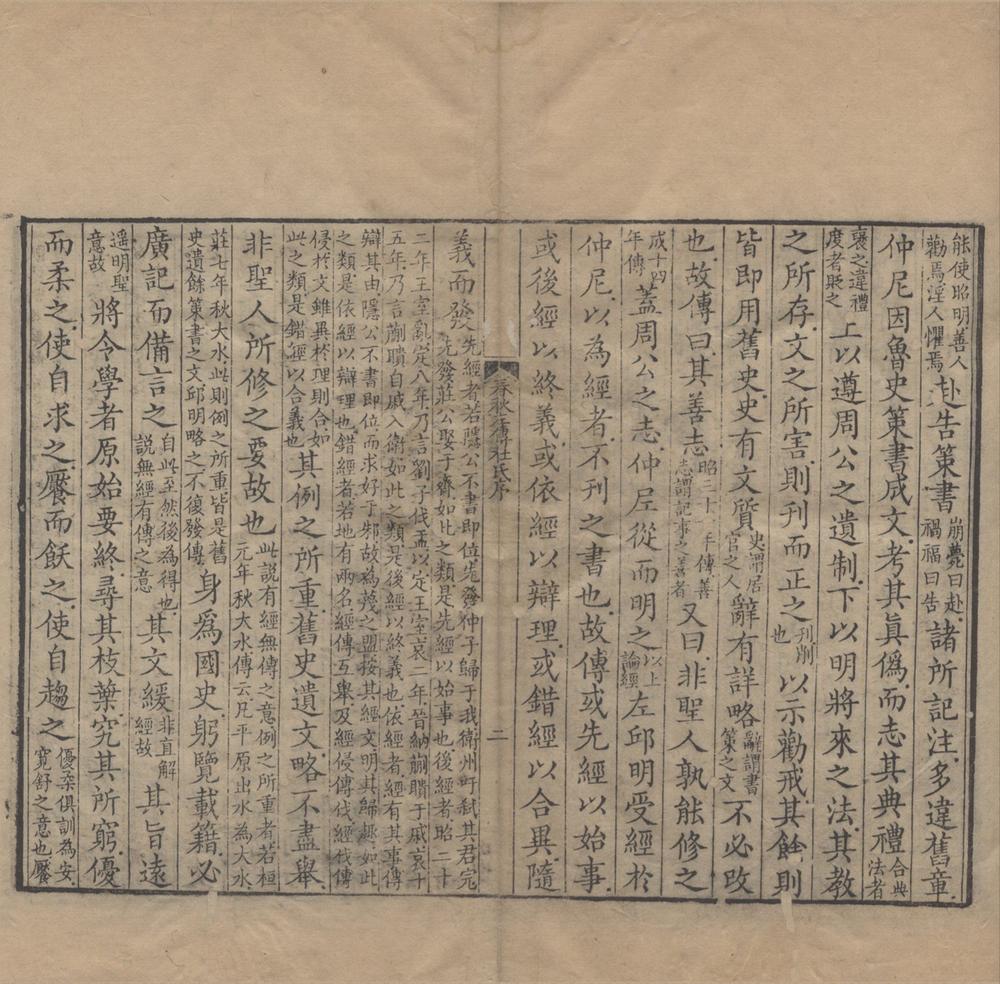 能使昭明善人勸焉淫人懼焉赴告策書崩薨曰赴禍福曰告諸所記注多違舊章
仲尼因魯史策書成文考其眞僞而志其典禮合典法者
襃之違禮度者貶之上以遵周公之遺制下以明將來之法其教
之所存文之所害則刋而正之刋削也以示勸戒其餘則
皆即用舊史史有文質史謂居官之人辭有詳略辭謂書策之文不必改
也故傳曰其善志昭三十一年傳善志謂記事之善者又曰非聖人孰能修之
成十四年傳蓋周公之志仲尼從而明之以上論經左邱明受經於
仲尼以為經者不刋之書也故傳或先經以始事
或後經以終義或依經以辯理或錯經以合異隨
春秋左傳杜氏序 二
義而發先經者若隱公不書即位先發仲子歸于我衛州吁弑其君完先發莊公娶于齊如此之類是先經以始事也後經者昭二十
二年王室亂定八年乃言劉子伐盂以定王室哀二年晉納蒯聵于戚哀十五年乃言蒯聵自戚入衛如此之類是後經以終義也依經者經有其事傳
辯其由隱公不書即位而求好于邾故為蔑之盟按其經文明其歸趣如此之類是依經以辯理也錯經者若地有兩名經傳互舉及經侵傳伐經伐傳
侵於文雖異於理則合如此之類是錯經以合義也其例之所重舊史遺文略不盡舉
非聖人所修之要故也此說有經無傳之意例之所重者若桓元年秋大水傳云凡平原出水為大水
莊七年秋大水此則例之所重皆是舊史遺餘策書之文邱明略之不復發傳身爲國史躬覽載籍必
廣記而備言之自此至然後為得也說無經有傳之意其文緩非直解經故其旨遠
遥明聖意故將令學者原始要終尋其枝葉究其所窮優
而柔之使自求之饜而飫之使自趨之優柔俱訓為安寬舒之意也饜